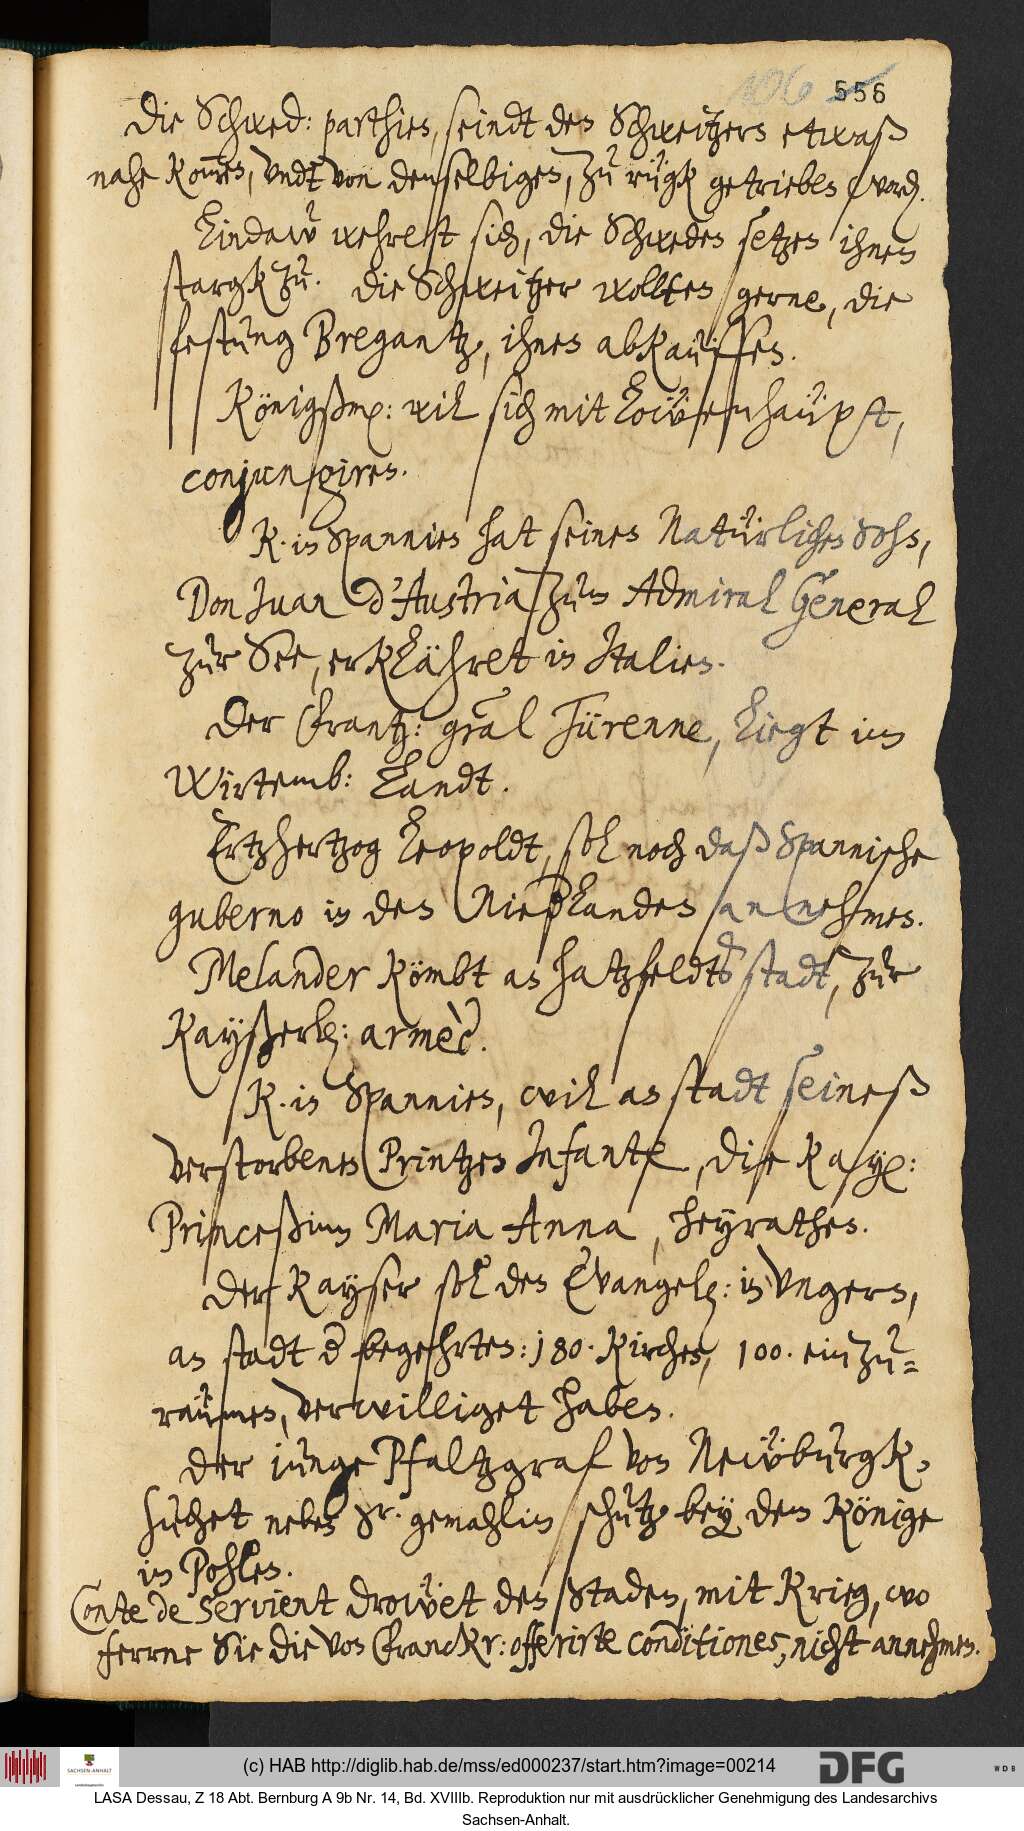 106 556
Die Schwed: parthien, seindt den Schweitzern etwaß
nahe kom̄en, vndt von denselbigen, zu rügk getrieben word.
Lindaw wehret sich, die Schweden setzen ihnen
stargk zu. Die Schweitzer wollten gerne, die
festung Bregantz, ihnen abkauffen.
Königßm: wil sich mit Lowenhaupt,
conjungiren.
K. in Spannien hat seinen Naturlichen Sohn,
Don Juan d'Austria zum Admiral General
zur See, erklähret in Italien.
Der Frantz: gral Türenne, liegt im
Wirtemb: Landt.
Ertzhertzog Leopoldt, sol noch daß Spannische
guberno in den Niederlanden annehmen.
Melander kömbt an Hatzfeldts stadt, zur
Kayßerl: armèe.
K. in Spannien, wil an stadt seineß
verstorbenen Printzen Infante, die Kays:
Princeßinn Maria Anna, heyrathen.
Der Kayser sol den Evangel: in Vngern,
an stadt d begehrten: 180. Kirchen, 100. ein zu=
raumen, verwilliget haben.
Der junge Pfaltzgraf von Newburgk,
suchet neben Sr. gemahlin schutz bey dem Könige
in Pohlen.
Conte de Servient drowet den Staden, mit Krieg, wo
ferrne Sie die von Franckr: offerirte conditiones, nicht annehmen.
SACHSEN-ANHALT
(c) HAB http://diglib.hab.de/mss/ed000237/start.htm?image=00214
DFG
WDB
LASA Dessau, Z 18 Abt. Bernburg A 9b Nr. 14, Bd. XVIIIb. Reproduktion nur mit ausdrücklicher Genehmigung des Landesarchivs
Sachsen-Anhalt.